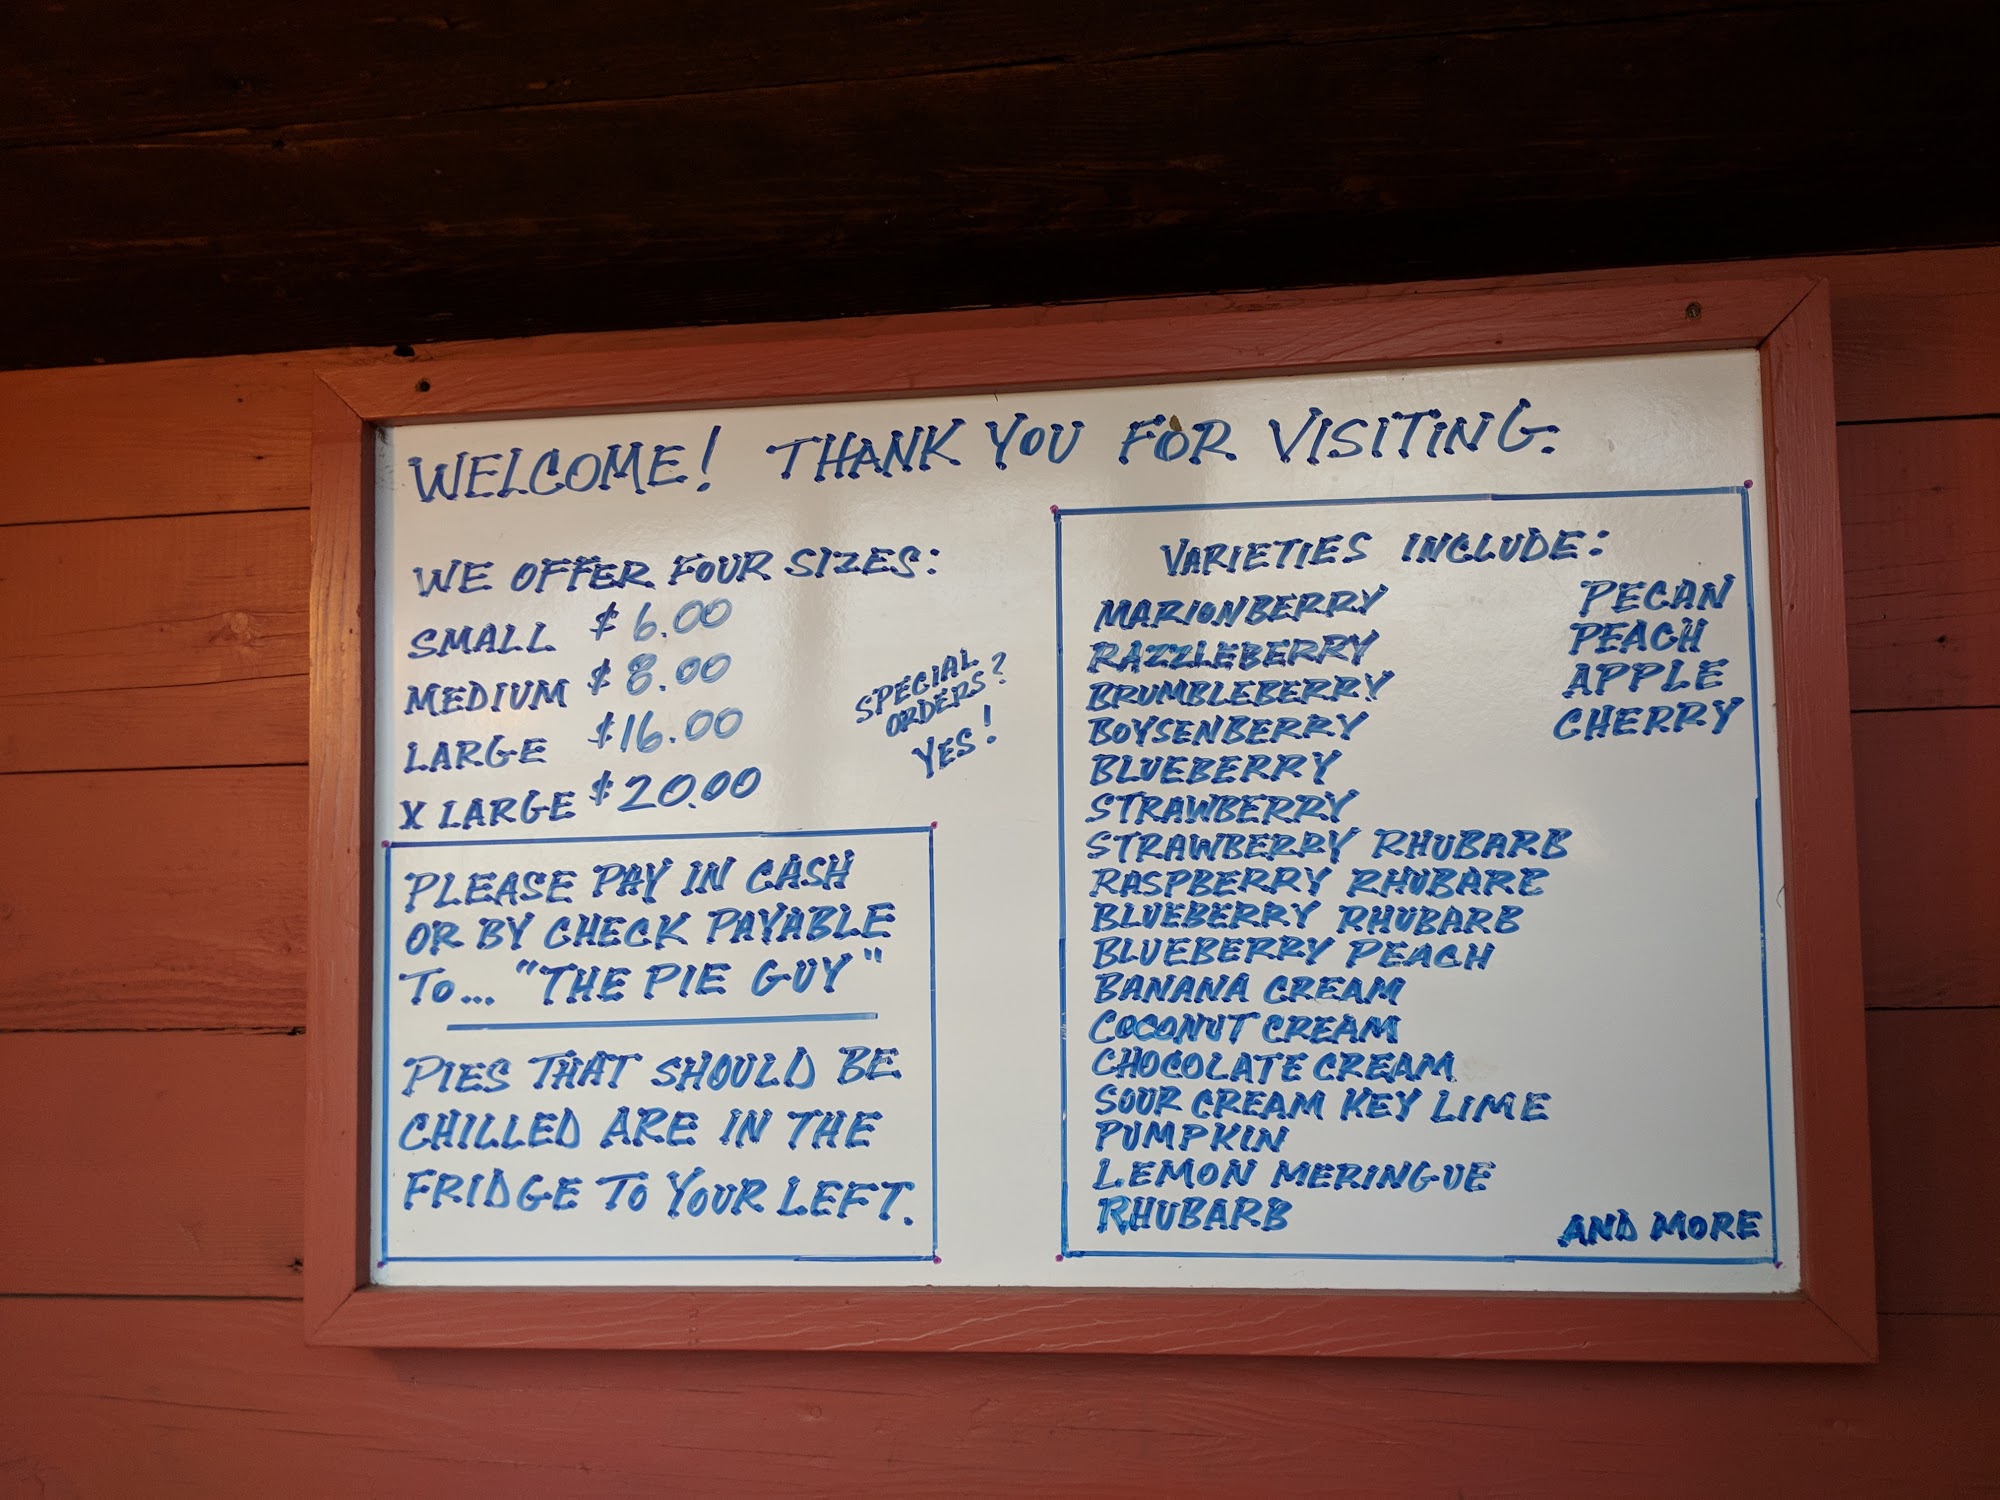 WELCOME! THANK YOU FOR VISITING.
WE OFFER FOUR SIZES:
SMALL $6.00
MEDIUM $8.00
LARGE $16.00
X LARGE $20.00
SPECIAL
ORDERS?
YES!
PLEASE PAY IN CASH
OR BY CHECK PAYABLE
TO... "THE PIE GUY"
PIES THAT SHOULD BE
CHILLED ARE IN THE
FRIDGE TO YOUR LEFT.
VARIETIES INCLUDE:
MARIONBERRY
RAZZLEBERRY
BRUMBLEBERRY
BOYSENBERRY
BLUEBERRY
STRAWBERRY
STRAWBERRY RHUBARB
RASPBERRY RHUBARB
BLUEBERRY RHUBARB
BLUEBERRY PEACH
BANANA CREAM
COCONUT CREAM
CHOCOLATE CREAM
SOUR CREAM KEY LIME
PUMPKIN
LEMON MERINGUE
RHUBARB
PECAN
PEACH
APPLE
CHERRY
AND MORE